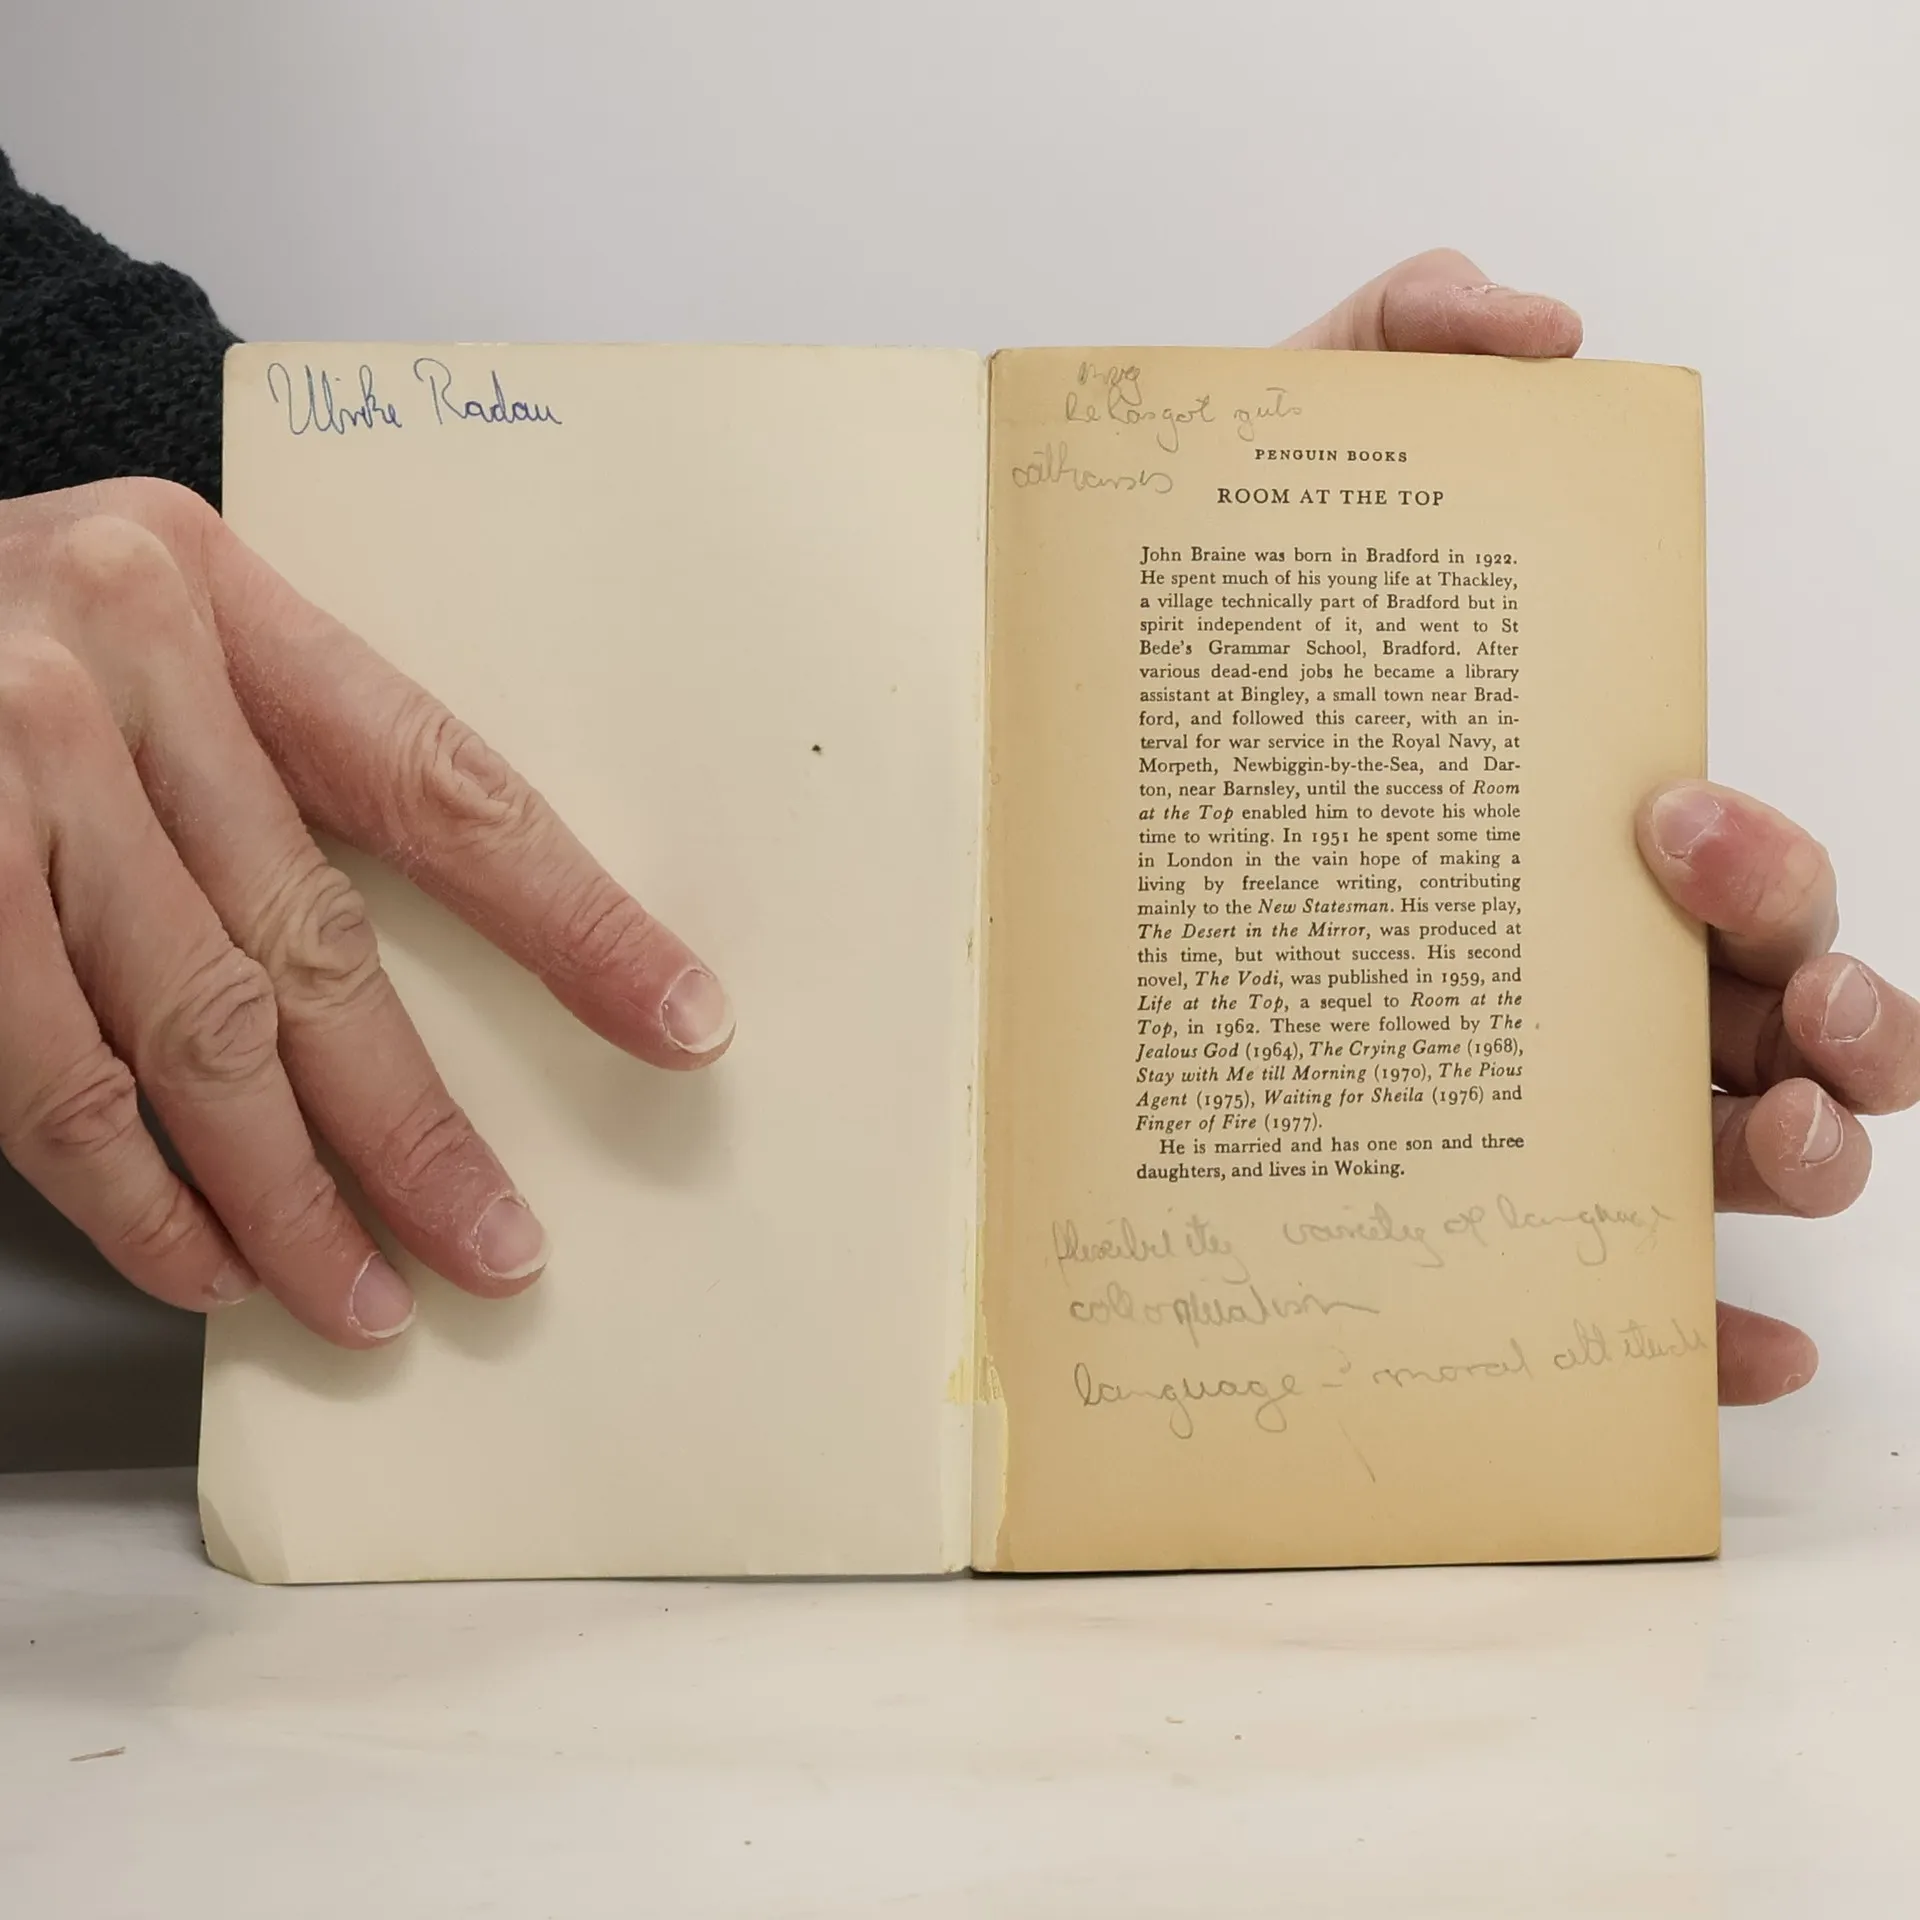 Ulrike Radau
he has got guts
PENGUIN BOOKS
ROOM AT THE TOP
John Braine was born in Bradford in 1922.
He spent much of his young life at Thackley,
a village technically part of Bradford but in
spirit independent of it, and went to St
Bede's Grammar School, Bradford. After
various dead-end jobs he became a library
assistant at Bingley, a small town near Brad-
ford, and followed this career, with an in-
terval for war service in the Royal Navy, at
Morpeth, Newbiggin-by-the-Sea, and Dar-
ton, near Barnsley, until the success of Room
at the Top enabled him to devote his whole
time to writing. In 1951 he spent some time
in London in the vain hope of making a
living by freelance writing, contributing
mainly to the New Statesman. His verse play,
The Desert in the Mirror, was produced at
this time, but without success. His second
novel, The Vodi, was published in 1959, and
Life at the Top, a sequel to Room at the
Top, in 1962. These were followed by The
Jealous God (1964), The Crying Game (1968),
Stay with Me till Morning (1970), The Pious
Agent (1975), Waiting for Sheila (1976) and
Finger of Fire (1977).
He is married and has one son and three
daughters, and lives in Woking.
flexibility variety of language
colloquialism
language - moral attitude